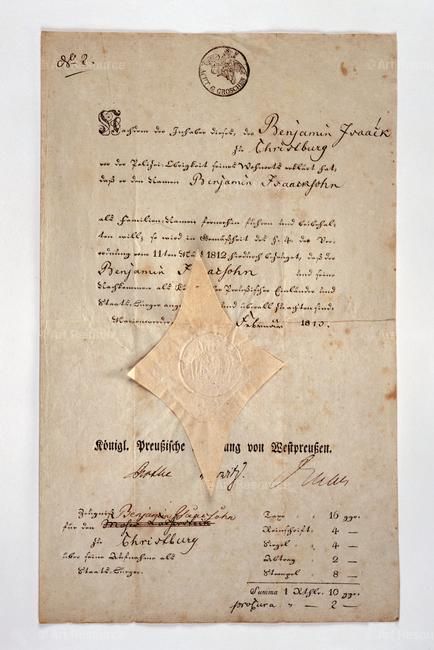 No 2.
MIT 6 GROSCHEN
Nachdem der Inhaber dieses, der Benjamin Isaack
zu Christburg
vor der Polizei-Obrigkeit seines Wohnorts erklärt hat,
daß er den Namen Benjamin Isaacksohn
als Familien-Namen fernerhin führen und beibehal-
ten will; so wird in Gemäßheit des §. 4. der Ver-
ordnung vom 11ten 1812 hierdurch bezeugt, daß der
Benjamin Isaacksohn und seine
Nachkommen als Preußischer Einländer und
Staats-Bürger und überall zu achten sind.
Marienwerder Februar 1813.
Königl. Preußische von Westpreußen.
Zeugniß Benjamin Isaacksohn
für den
zu Christburg
über seine Aufnahme als
Staats-Bürger.
Taxe 16 ggr.
Reinschrift. 4 —
Siegel 4 —
Abtrag 2 —
Stempel 8 —
Summa 1 Rthlr. 10 ggr.
procura — 2 —
Art Resource